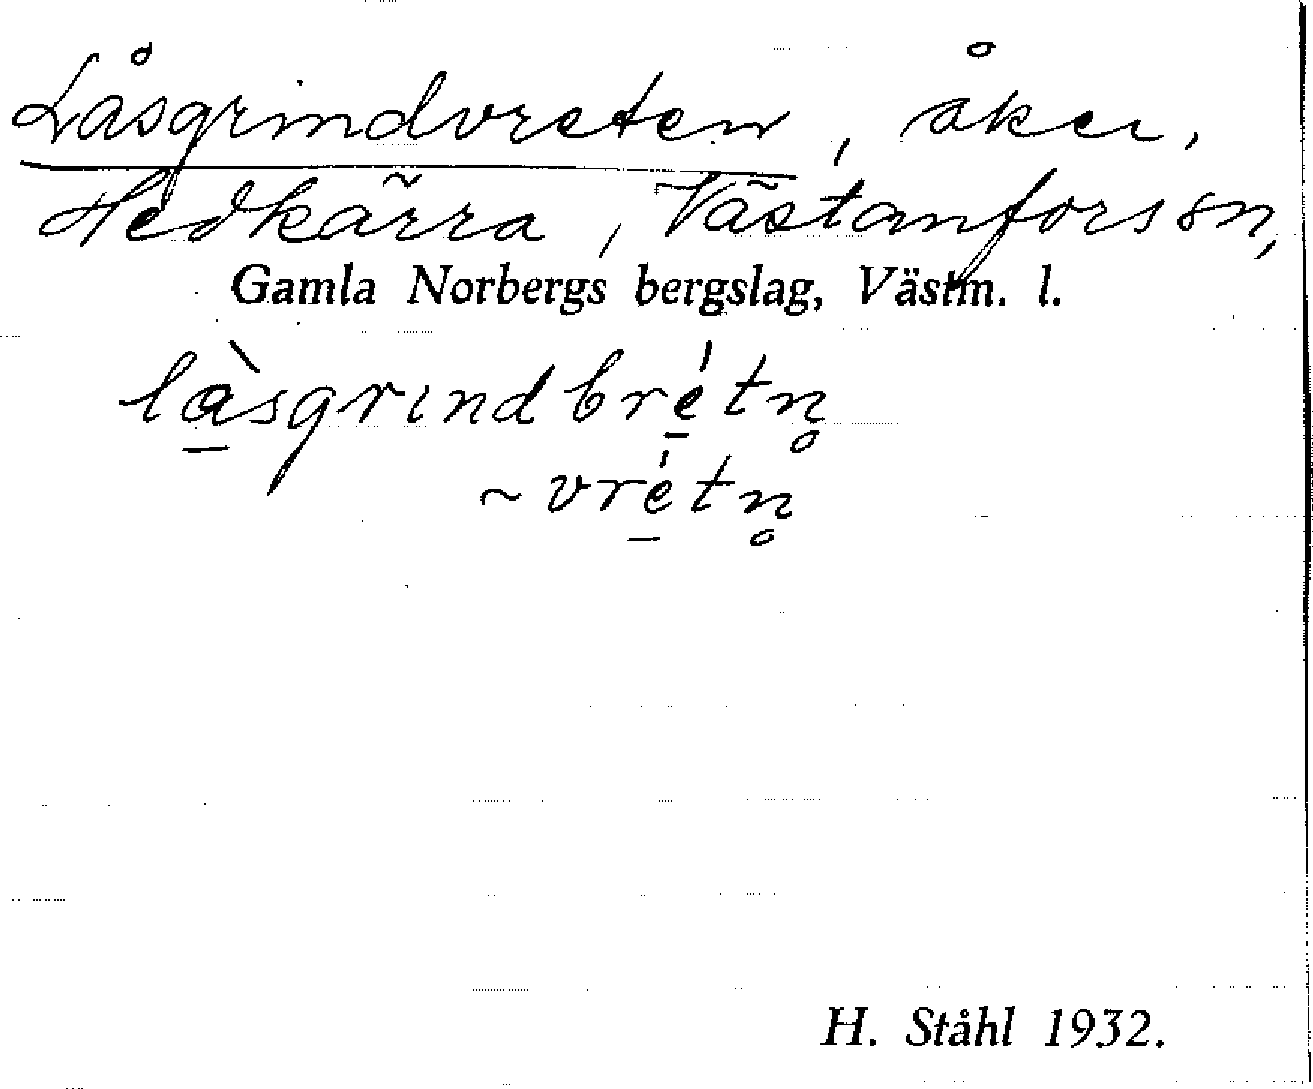 Låsgrindvreten, åker,
Hedkärra, Västanfors sn,
Gamla Norbergs bergslag, Västm. l.
là̱sgrindbré̱tn̥
~vré̱tn̥
H. Ståhl 1932.